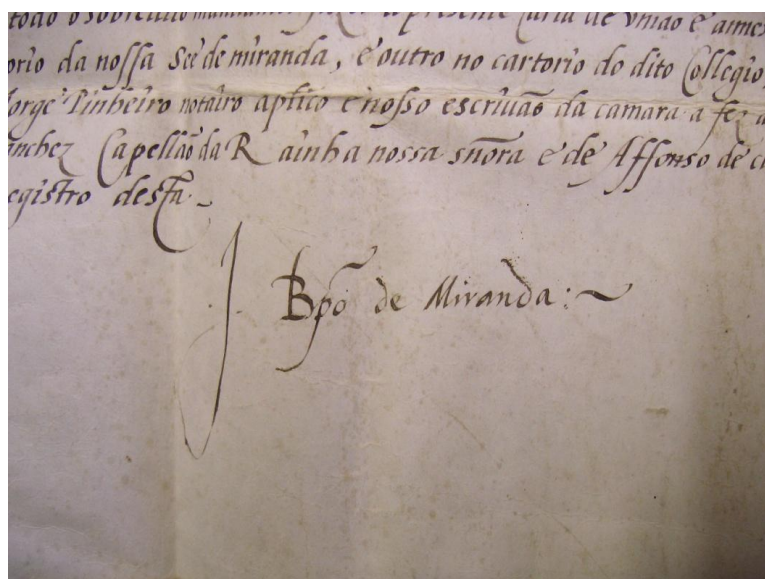 a presente carta de vnião e annex
orio da nossa Seé de miranda, e outro no cartorio do dito Collegio,
Jorge Pinheiro notairo aptico e nosso escriuão da camara a fez
anchez Capellão da Rainha nossa sñora e de Affonso de
egistro desta
J. Bpõ de Miranda:~